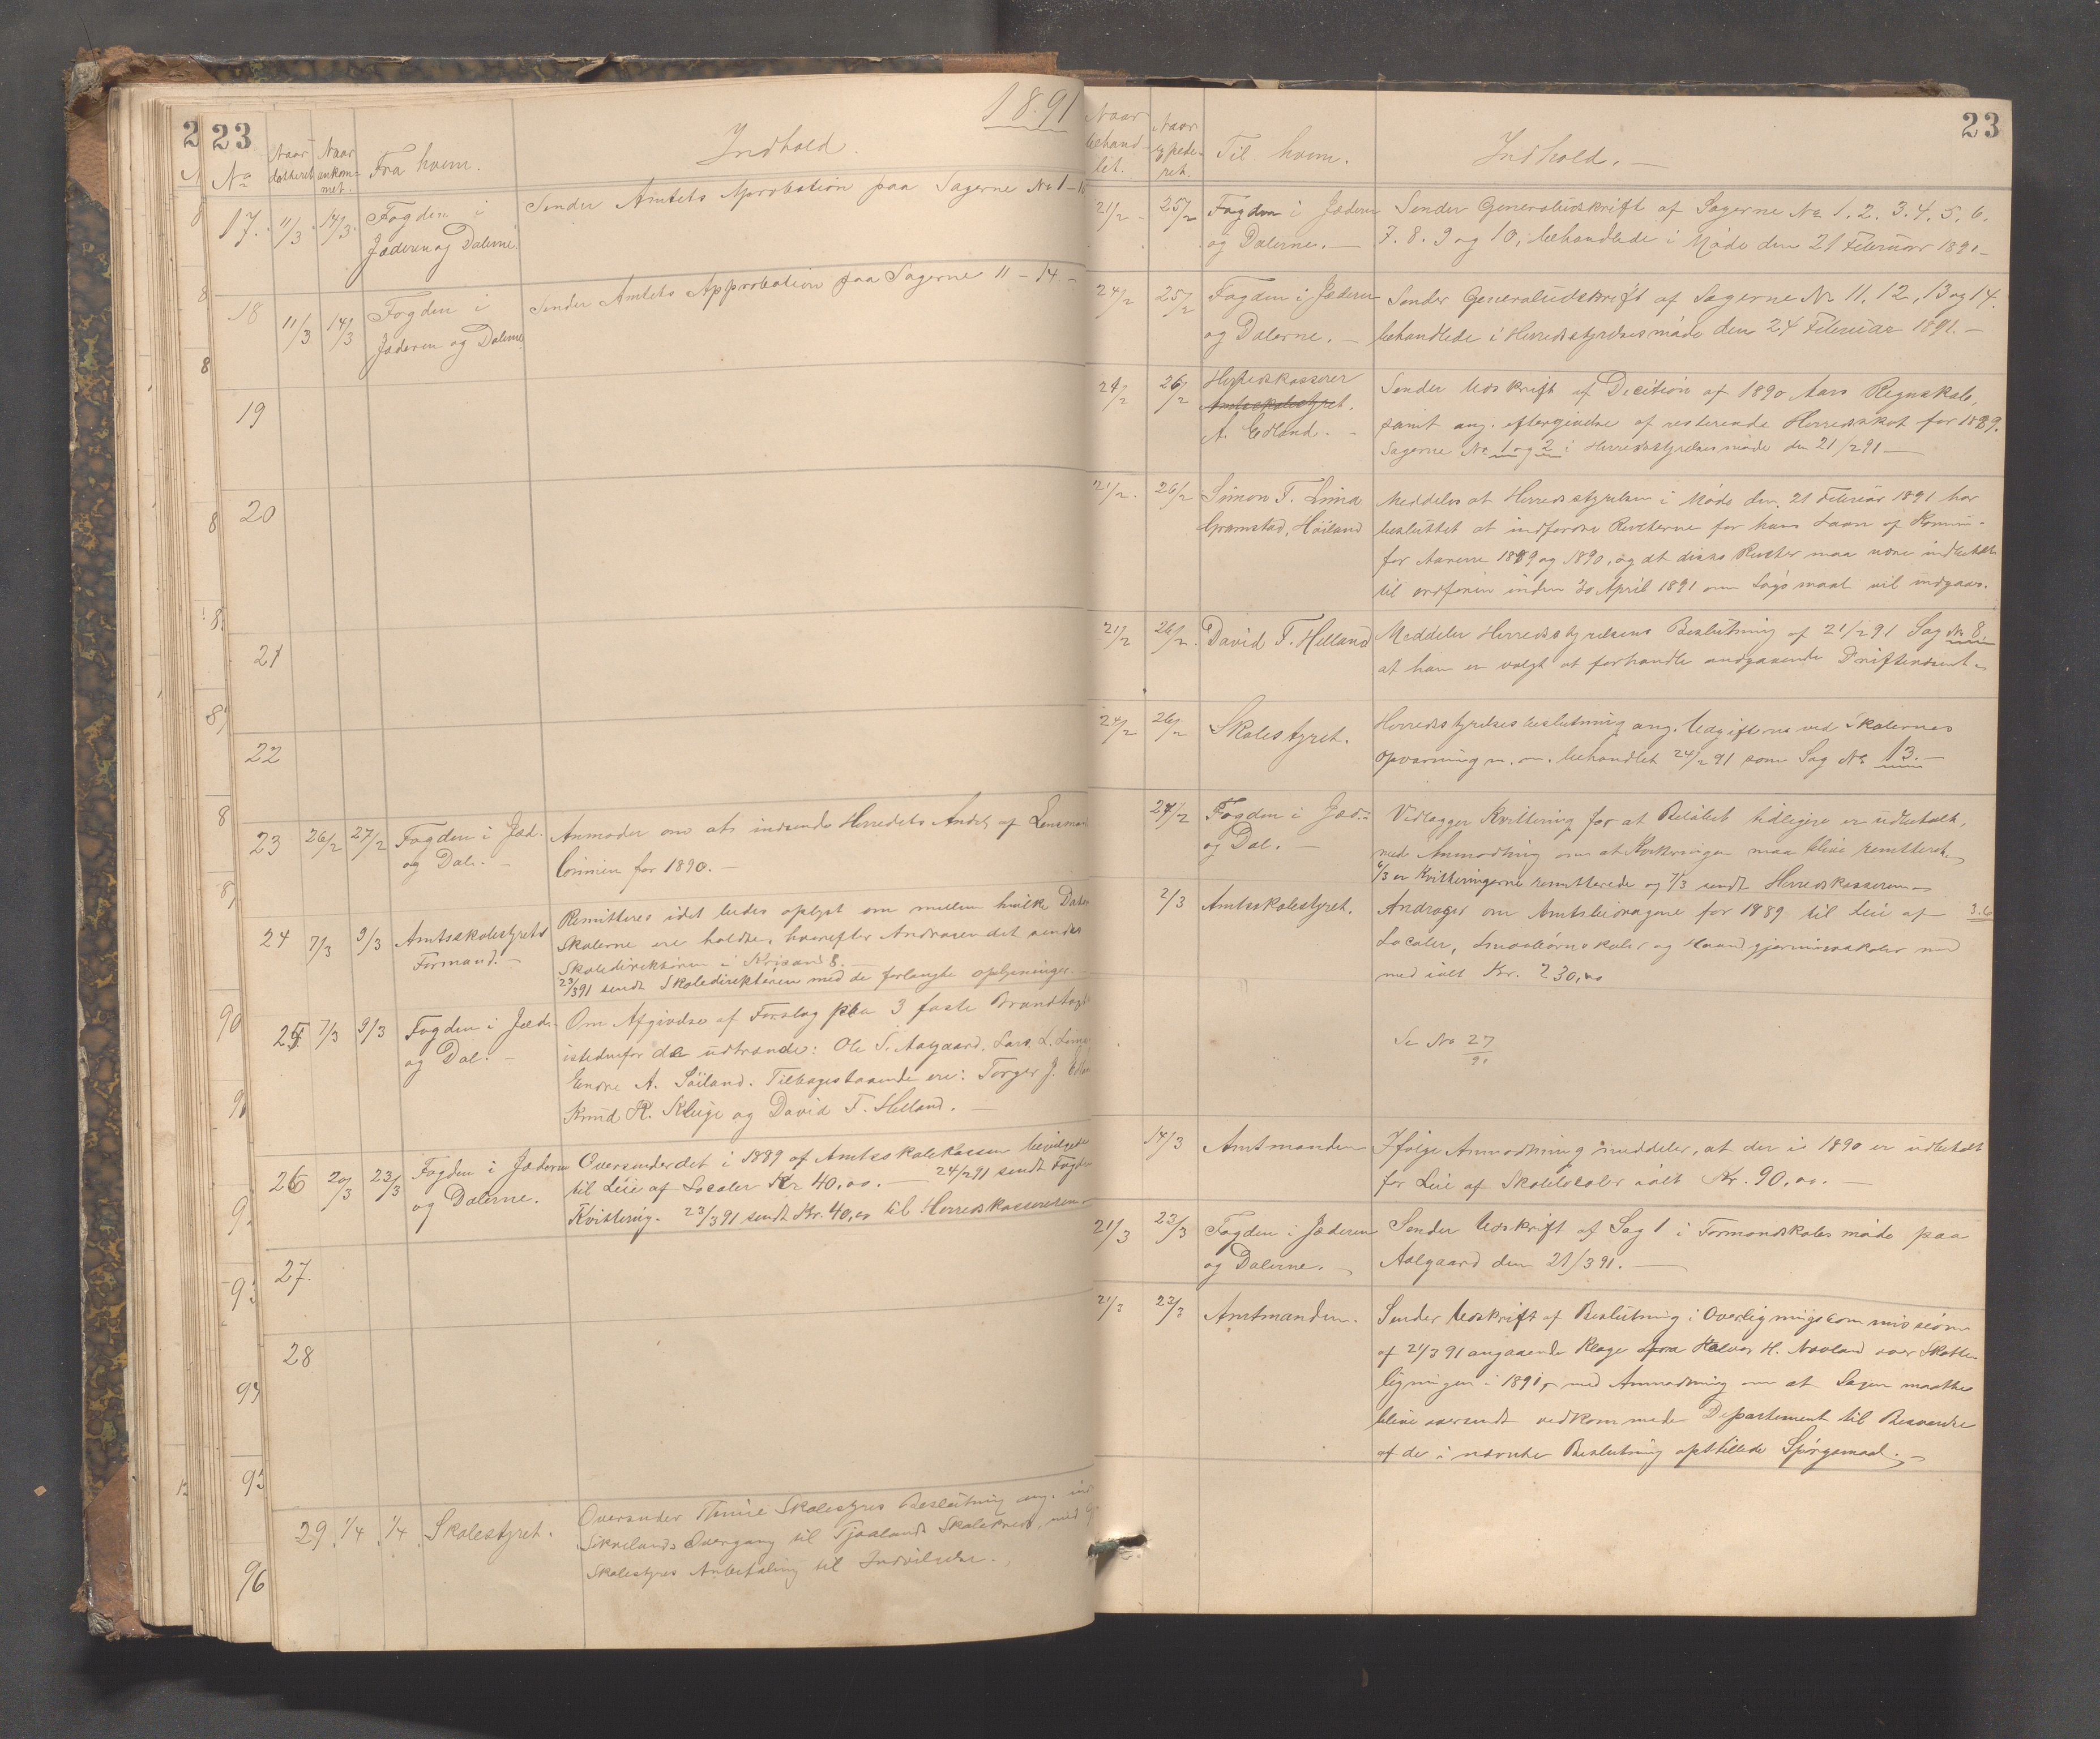 23
1891
No
Naar
datteret
Naar
ankom-
met.
Fra hvem.
Indhold.
17. 11/3 14/3. Fogden i
Jæderen og Dalerne.
Sender Amtets Aprobation paa Sagerne No 1 –
18 11/3 14/3 Fogden i
Jæderen og Dalerne
Sender Amtets Approbation paa Sagerne 11 – 14 –
19
20
21
22
23 26/2 27/2 Fogden i Jæd.
og Dal. –
Anmoder om at indsende Herredets Andel af
for 1890. –
24 7/3 9/3 Amtsskolestyrets
Formand. –
Remitteres idet bedes oplyst om mellem hvilke
Skolerne ere holdte, hvorefter Andragendet sendes
Skoledirektøren i
23/3 91 sendt Skoledirektøren med de forlangte oplysninger.
25 7/3 9/3 Fogden i Jæd.
og Dal. –
Om Afgivelse af Forslag paa 3 faste
istedenfor de udtrædende: Ole S. Aalgaard, Lars L. Lima
Endre A. Söiland. Tilbagestaaende ere: Torger J.
Knud R. Kluge og David T. Helland. –
26 20/3 23/3 Fogden i Jæderen
og Dalerne.
Oversender det i 1889 af Amtsskolekassen bevilgede
til Leie af Localer Kr 40,00. – 24/2 91 sendt Fogden
Kvittering. 23/3 91 sendt Kr. 40,00 til Herredskassereren
27.
28
29 1/4 1/4 Skolestyret.
Oversender Skolestyres Beslutning ang.
Overgang til Tjaalands Skolekreds, med
Skolestyres Anbefaling til Indvilgelse.
23
Naar
behand-
let.
Naar
expede-
ret.
Til hvem.
Indhold. –
21/2 25/2 Fogden i Jæderen
og Dalerne. –
Sender Generaludskrift af Sagerne No 1. 2. 3. 4. 5. 6.
7. 8. 9 og 10, behandlede i Møde den 21 Februar 1891 –
24/2 25/2 Fogden i Jæderen
og Dalerne. –
Sender Generaludskrift af Sagerne No 11, 12, 13 og 14.
behandlede i Herredsstyrelsesmøde den 24 Februar 1891. –
21/2 26/2 Herredskasserer
Amtsskolestyret.
A. Edland. –
Sender Udskrift af Decition af 1890 Aars Regnskab,
samt ang. eftergivelse af resterende Herredsskat for 1889.
Sagerne No 1 og 2 i Herredsstyrelsesmøde den 21/2 91 –
21/2. 26/2 Simon T. Lima
Gramstad, Höiland
Meddeles at Herredsstyrelsen i Møde den 21 Februar 1891 har
besluttet at indfordre Renterne for hans Laan af Komm-
for Aarene 1889 og 1890, og at disse Renter maa være indbetalt
til ordføren inden 30 April 1891 om Søgsmaal vil undgaaes.
21/2 26/2. David T. Helland
Meddeler Herredsstyrelsens Beslutning af 21/2 91 Sag No 8.
at han er valgt at forhandle angaaende
24/2 26/2 Skolestyret.
Herredsstyrelsesbeslutning ang. Udgifterne ved Skolernes
Opvarming m. m. behandlet 24/2 91 som Sag No 13. –
27/2 Fogden i Jæd.
og Dal. –
Vedlægger Kvittering for at Beløbet tidligere er udbetalt,
med Anmodning om at Kvitteringen maa blive remitteret.
6/3 er Kvitteringerne remitterede og 7/3 sendt Herredskassereren –
2/3 Amtsskolestyret.
Andrager om Amtsbidragene for 1889 til Leie af
Localer, Smaabørnsskoler og Haandgjerningsskoler med
med ialt Kr. 230,00
Se No 27/91
14/3 Amtmanden
Ifølge Anmodning meddeler, at der i 1890 er udbetalt
for Leie af Skolelocaler ialt Kr. 90,00. –
21/3 23/3 Fogden i Jæderen
og Dalerne. –
Sender Udskrift af Sag 1 i Formandskabsmøde paa
Aalgaard den 21/3 91. –
21/3 23/3 Amtmanden.
Sender Udskrift af Beslutning i Overligningscommissionen
af 21/3 91 angaaende Klage fra Halvor H. Navland over Skatte-
ligningen i 1891, med Anmodning om at Sagen maatte
blive oversendt vedkommende Departement til Besvarelse
af de i nævnte Beslutning opstillede Spørgsmaal. –